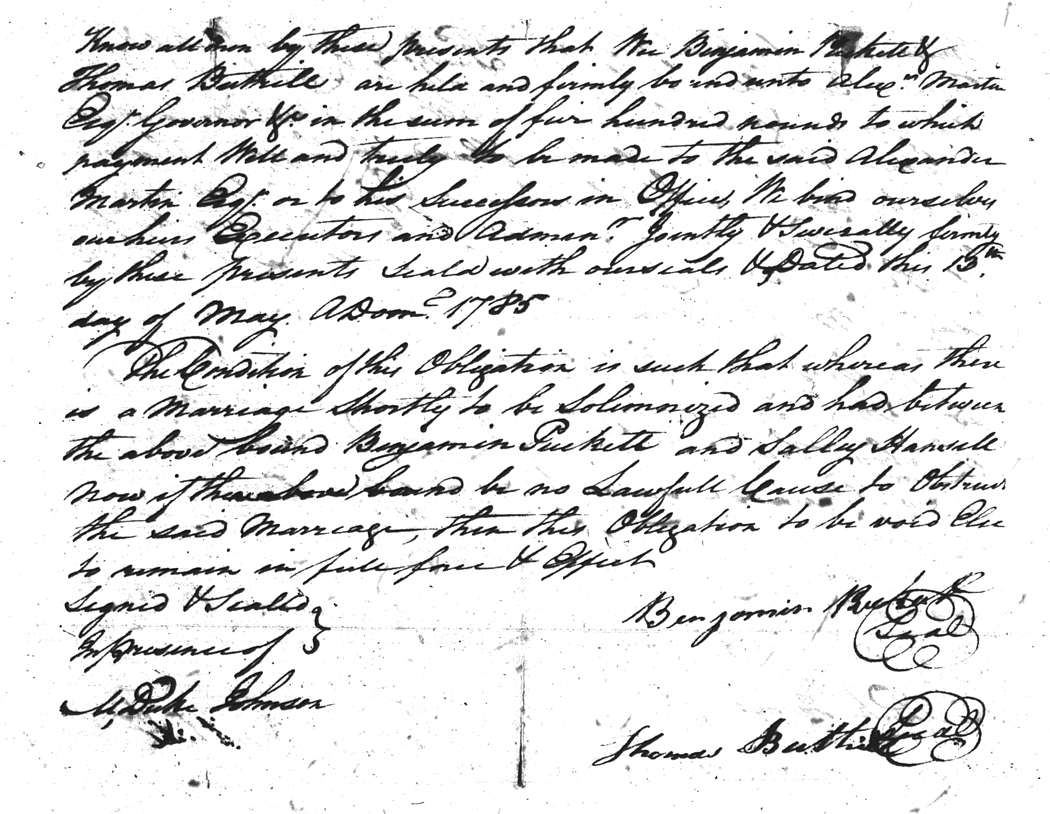 Know all men by these presents that We Benjamin Puckett &
Thomas Buthell are held and firmly bound unto Alexr. Martin
Esqr. Governor &c. in the sum of five hundred pounds to which
payment Well and truly to be made to the said Alexander
Martin Esqr. or to his Successors in Office, We bind ourselves
our heirs Executors and Admanr. Jointly & Severally firmly
by these presents Seald with our seals & Dated this 13th
day of May. ADom. 1785
The Condition of this Obligation is such that whereas there
is a Marriage Shortly to be Solemnized and had between
the above bound Benjamin Puckett and Salley Hansell
Now if there above bound be no Lawfull Cause to Obstruct
the said Marriage, then this Obligation to be void Else
to remain in full force & Effect
Signed & Sealed
In presence of
M, Duke Johnson
Benjamin Puckett
Seal
Thomas Seal